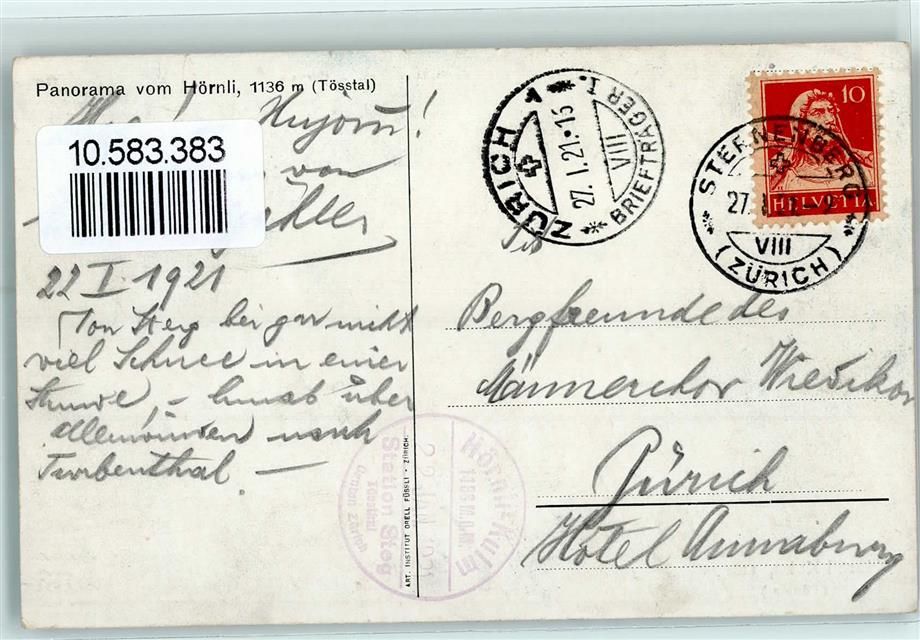 Panorama vom Hörnli, 1136 m (Tösstal)
10.583.383
von
22 I. 1921
Von Steg bei gar nicht
viel Schnee in einer
Stunde, – hinab über
nach
Turbenthal –
ZÜRICH 1
27. I. 21. 15
VIII
BRIEFTRÄGER I.
10
HELVETIA
STERNENBERG
27. I. 21
VIII
(ZÜRICH)
Bergfreunde des
Männerchor Wiedikon
Zürich
Hôtel Annaburg
Hörnli Kulm
1136 M.ü.M
22 JAN 1921
Station Steg
Tösstal
Canton Zürich
ART. INSTITUT ORELL FÜSSLI - ZÜRICH.